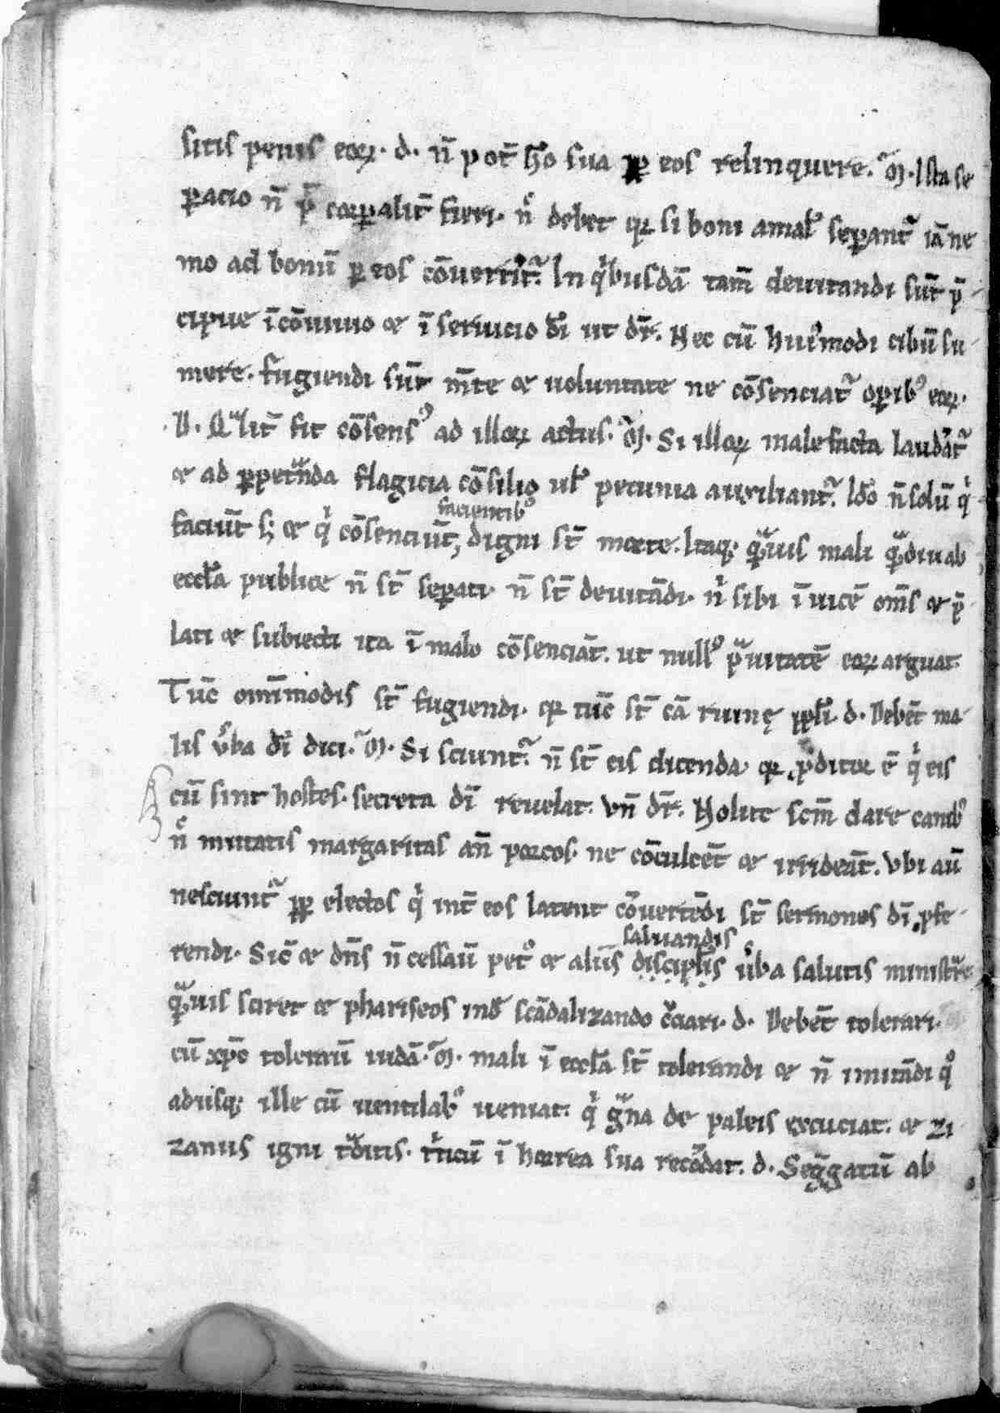 sitis penis eoꝝ· d· n̄ pot̄ hō sua ꝓp eos relinquere. m̄. Ista se
ꝑacio n̄ p̄ corꝑalit̄ fieri· n̄ debet qꝛ si boni a malꝭ seꝑant᷑ iā ne
mo ad bonū ꝑ eos cōuertit᷑. In qͥbusdā tam̄ deuitandi sūt p̄
cipue ī cōuiuio et ī seruicio dī ut dr̄. Nec cū huiꝰmodi cibū su
mere. fugiendi sūt m̄te et uoluntate ne cōsenciat᷑ oꝑibꝰ eoꝝ.
D. Qͣlit̄ fit cōsensꝰ ad illoꝝ actus. m̄. Si illoꝝ malefacta laudāt᷑
et ad ꝑpetͣnda flagicia cōsilio ul̄ pecunia auxiliant᷑. Idō n̄ solū qͥ
facientibꝰ
faciūt sꝫ et qͥ cōsenciūt, digni st̄ morte. Itaqꝫ qͣuis mali qͣdiu ab
eccl̄a publice n̄ st̄ seꝑati· n̄ st̄ deuitādi· nͥ sibi īuicē om̄s et p̄
lati et subiecti ita ī malo cōsenciāt. ut nullꝰ pͣuitatē eoꝝ arguat.
Tūc omīmodis st̄ fugiendi· qꝛ tūc st̄ cā ruinę ppl̄i. d. Debēt ma
lis ūba dī dici. m̄. Si sciunt᷑ n̄ st̄ eis dicenda qꝛ ꝓditor ē qͥ eis
cū sint hostes· secreta dī reuelat. Vn̄ dr̄. Nolite scm̄ dare canibꝰ
nͨ mittatis margaritas an̄ porcos· ne cōculcēt et irrideāt. Vbi aū
nesciunt᷑ ꝓp electos qͥ int̄ eos latent cōuertēdi st̄ sermones dī ꝓfe
rendi. Sic̄ et dn̄s n̄ cessauī petͦ et aliis
saluandis
discipl̄is ūba salutis ministͣre
qͣuis sciret et phariseos inđ scādalizando cͨciari· d· Debēt tolerari.
cū xp̄o tolerauī iudā. m̄. mali ī eccl̄a st̄ tolerandi et n̄ imitādi qͦ
adusqꝫ ille cū uentilabͦ ueniat. qͥ gͣna de paleis excuciat. et zi
zaniis igni tͣditis. tͥticū ī horrea sua recōdat. d. Segͣgatū ab